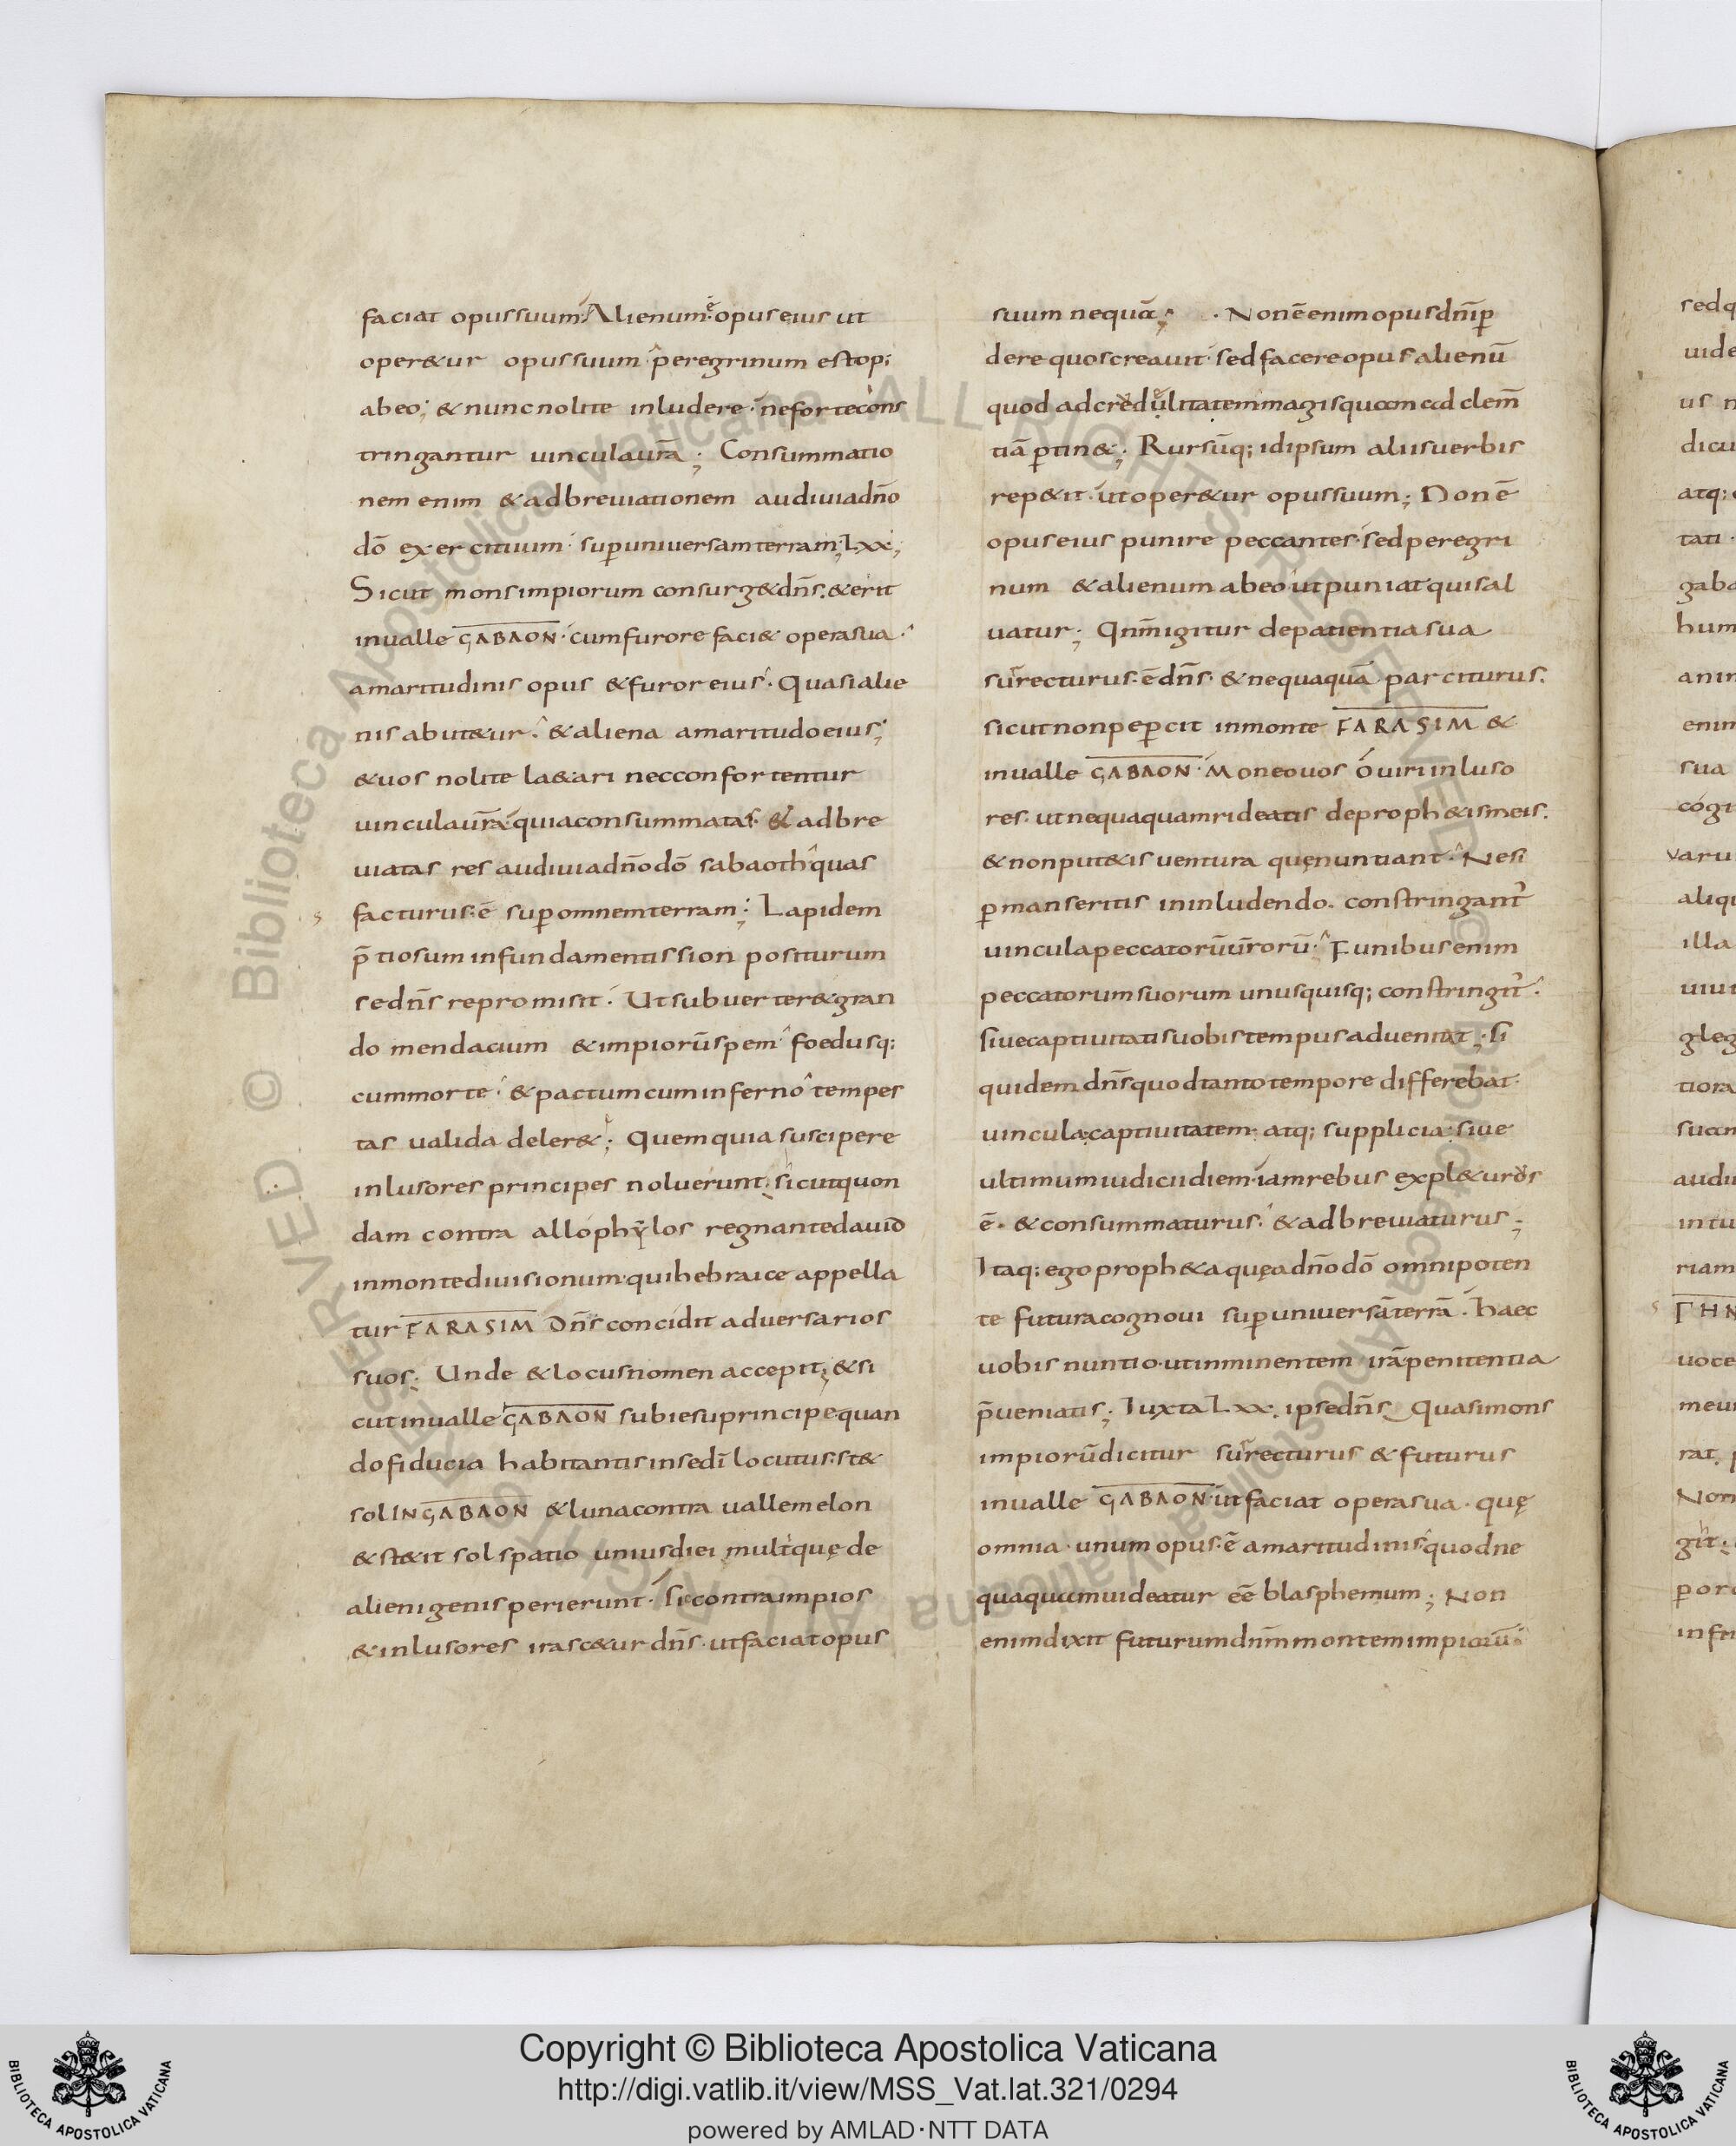 faciat opus suum; Alienum ē opus eius ut
oper&ur opus suum peregrinum est op;
abeo; & nunc nolite inludere. ne forte cons
tringantur uincula ur̄a; Consummatio
nem enim & adbreuiationem audiui a dn̄o
dō exercituum super uniuersam terram; Lxx;
Sicut mons impiorum consurg& dn̄s. & erit
in ualle GABAON. cum furore faci& opera sua.
amaritudinis opus & furor eius. Quasi alie
nis abut&ur. & aliena amaritudo eius;
& uos nolite la&ari nec confortentur
uincula ur̄a. quia consummatas & adbre
uiatas res audiui a dn̄o dō sabaoth quas
facturus ē super omnem terram; Lapidem
p̄tiosum in fundamentis sion positurum
se dn̄s repromisit. Ut subuerter& gran
do mendacium & impiorū spem foedusq;
cum morte. & pactum cum inferno tempes
tas ualida deler&; Quem quia suscipere
inlusores principes noluerunt. sicut quon
dam contra allophylos regnante dauid
in monte diuisionum. qui hebraice appella
tur FARASIM Dn̄s concidit aduersarios
suos; Unde & locus nomen accepit; & si
cut in ualle GABAON sub iesu principe quan
do fiducia habitantis in se dī locutus: st&
sol IN GABAON & luna contra uallem elon
& st&it sol spatio unius diei multiquę de
alienigenis perierunt. sic contra impios
& inlusores irasc&ur dn̄s. ut faciat opus
suum nequā; . Non ē enim opus dn̄i p̱
dere quos creauit. sed facere opus alienū
quod ad credulitatem magis quam ad clem̄
tiā p̱tin&; Rursūq; id ipsum aliis uerbis
rep&it. ut oper&ur opus suum; Non ē
opus eius punire peccantes. sed peregri
num & alienum ab eo ut puniat qui sal
uatur; Qnm̄ igitur de patientia sua
surrecturus. ē dn̄s. & nequaquā parciturus.
sicut non pep̱cit in monte FARASIM &
in ualle GABAON. Moneo uos ó uiri inluso
res. ut nequaquam rideatis de proph&is meis.
& non put&is uentura quę nuntiant. Ne si
p̱manseritis in inludendo. constringant'
uincula peccatorū ur̄orū. Funibus enim
peccatorum suorum unusquisq; constringit'.
siue captiuitatis uobis tempus adueniat; si
quidem dn̄s quod tanto tempore differebat.
uincula captiuitatem. atq; supplicia. siue
ultimum iudicii diem. iam rebus expl&urus
ē. & consummaturus. & adbreuiaturus;
Itaq; ego proph&a quę a dn̄o dō omnipoten
te futura cognoui super uniuersā terrā. haec
uobis nuntio. ut inminentem irā penitentia
p̄ueniatis; Iuxta Lxx. ipse dn̄s. Quasi mons
impiorū dicitur surrecturus & futurus
in ualle GABAON. ut faciat opera sua. quę
omnia. unum opus. ē amaritudinis. quod ne
quaquam uideatur eē blasphemum; Non
enim dixit futurum dnm̄ montem impiorū

sed q
uide
us n
dicu
atq;
tati.
gaba
hum
anim
enim
sua
cogi
uaru
aliqu
illa
uiui
gleg
tiora
succ
audi
in tu
riam
ΓΗΝ
uoce
meu
rat. p
Non
git.
p̱ord
infer

Copyright © Biblioteca Apostolica Vaticana
http://digi.vatlib.it/view/MSS_Vat.lat.321/0294
powered by AMLAD·NTT DATA
BIBLIOTECA APOSTOLICA VATICANA
BIBLIOTECA APOSTOLICA VATICANA
© Biblioteca Apostolica Vaticana ALL RIGHTS RESERVED © Biblioteca Apostolica Vaticana ALL RIGHTS RESERVED